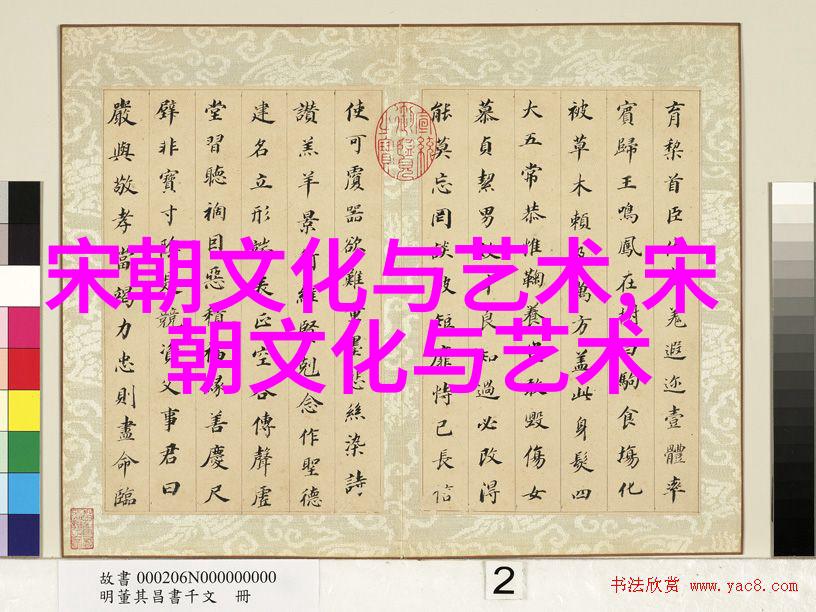 育棃首臣遐迩壹體率
賓歸王鳴鳳在樹白駒食場化
被草木賴及萬方蓋此身髮四
大五常恭惟鞠養敢毀傷女
慕貞絜男才良知過必改得
能莫忘罔談彼短靡恃己長信
使可覆器欲難量墨悲絲染詩
讚羔羊景行維賢剋念作聖德
建名立形端表正空谷傳聲虛
堂習聽禍因惡積福緣善慶尺
璧非寶寸陰是競資父事君曰
嚴與敬孝當竭力忠則盡命臨
宋朝文化与艺术,宋
朝文化与艺术
故書 000206N000000000
明董其昌書千文 冊
2
书法欣赏 www.yac8.com